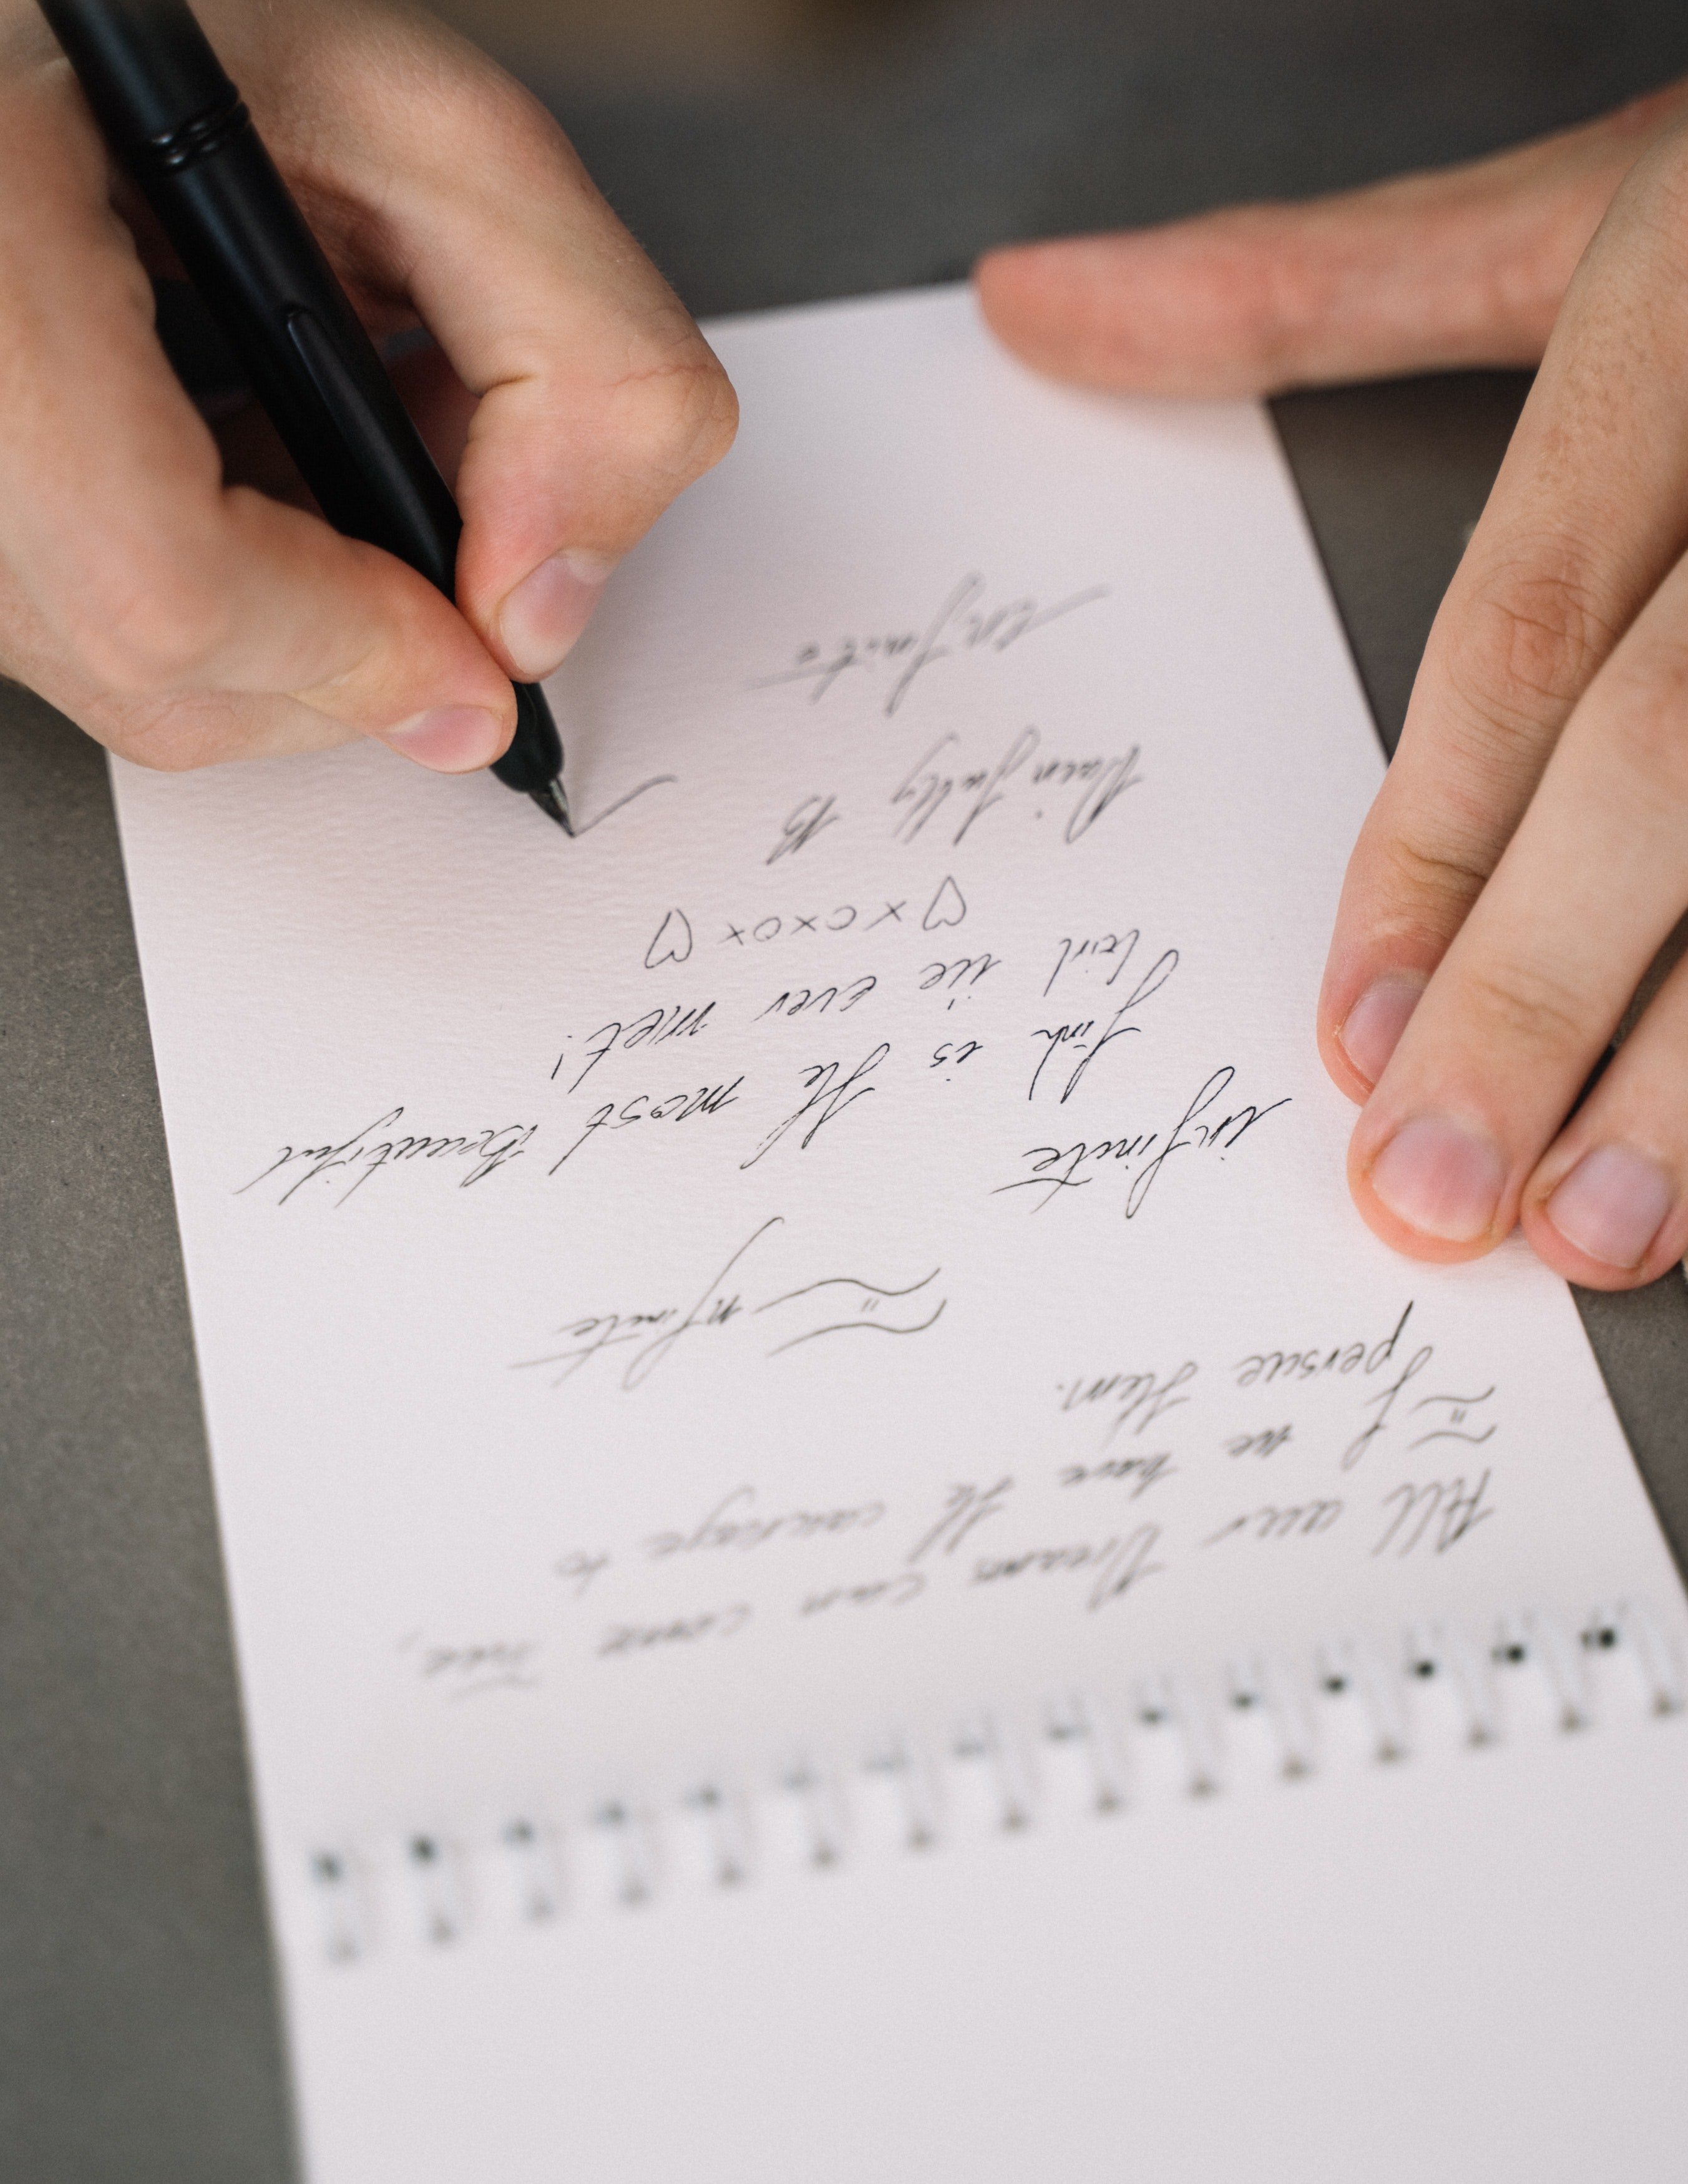 All our Dreams can come True,
if we have the courage to
persue them.
nfinite
infinite
Link is the most Beautiful
Girl we ever met!
♡ x o x o x ♡
Painfully B
infinite